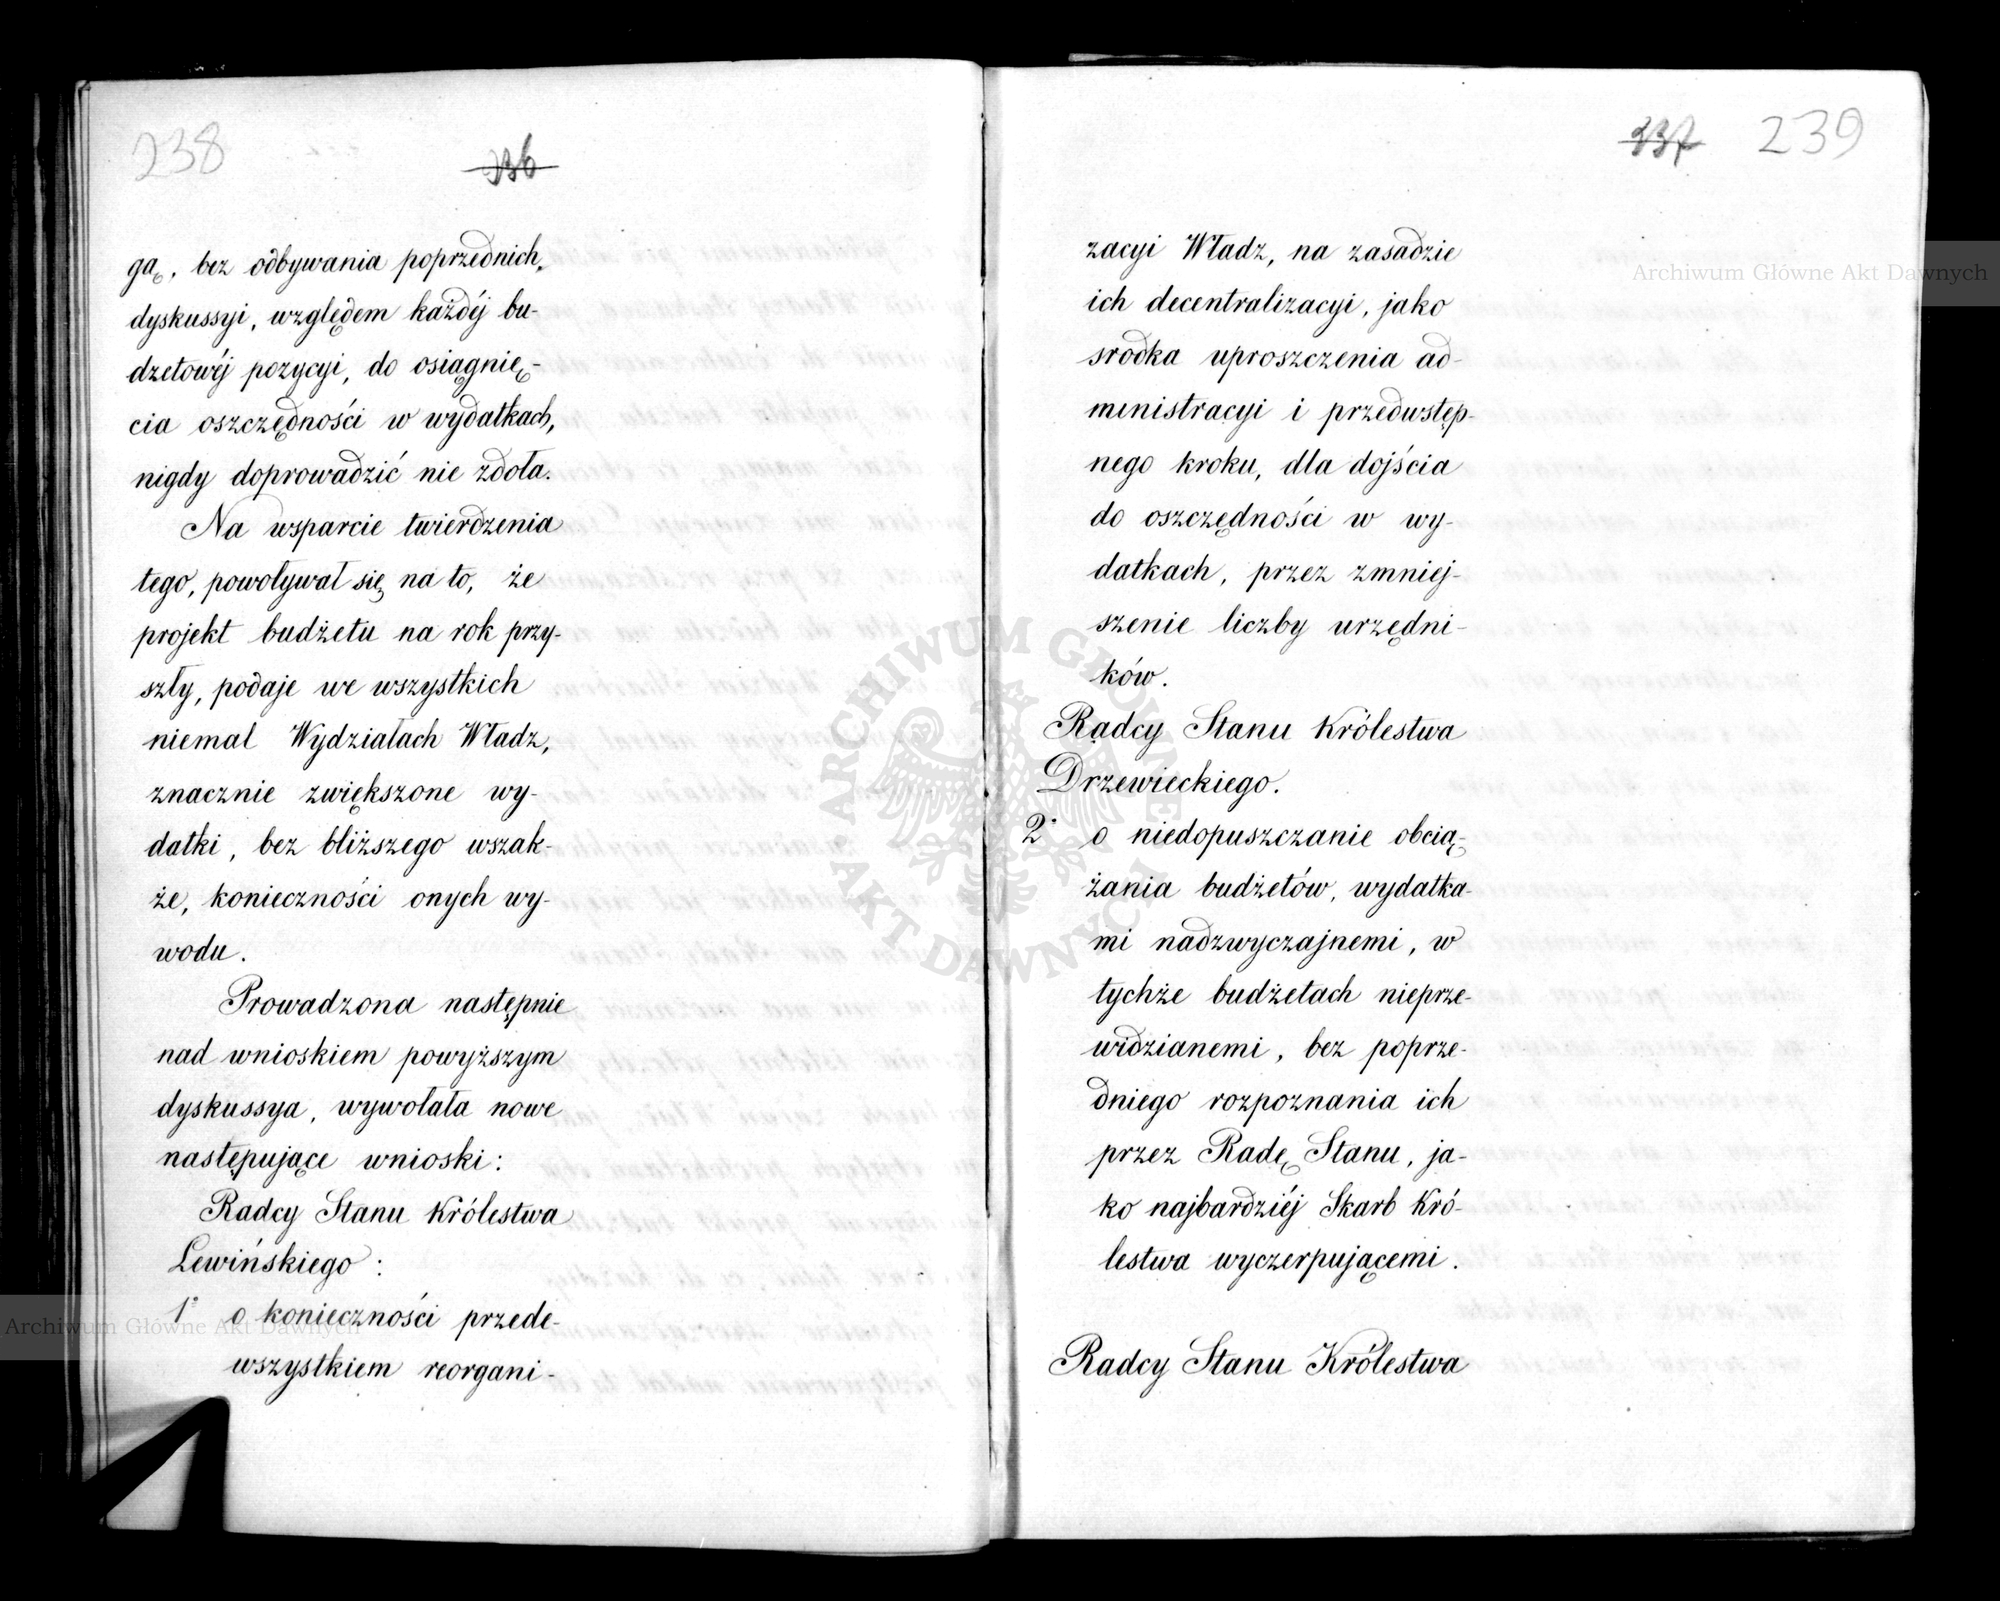 238
236
gą, bez odbywania poprzednich,
dyskussyi, względem każdéj bu-
dzetowéj pozycyi, do osiągnię-
cia oszczędności w wydatkach,
nigdy doprowadzić nie zdoła.
Na wsparcie twierdzenia
tego, powoływał się na to, że
projekt budżetu na rok przy-
szły, podaje we wszystkich
niemal Wydziałach Władz,
znacznie zwiększone wy-
datki, bez bliższego wszak-
że, konieczności onych wy-
wodu.
Prowadzona następnie
nad wnioskiem powyższym
dyskussya, wywołała nowe
następujące wnioski:
Radcy Stanu Królestwa
Lewińskiego:
1° o konieczności przede-
wszystkiem reorgani-
237 239
zacyi Władz, na zasadzie
ich decentralizacyi, jako
srodka uproszczenia ad-
ministracyi i przedwstęp-
nego kroku, dla dojścia
do oszczędności w wy-
datkach, przez zmniej-
szenie liczby urzędni-
ków.
Radcy Stanu Królestwa
Drzewieckiego.
2° o niedopuszczanie obcią-
żania budżetów, wydatka-
mi nadzwyczajnemi, w
tychże budżetach nieprze-
widzianemi, bez poprze-
dniego rozpoznania ich
przez Radę Stanu, ja-
ko najbardziéj Skarb Kró-
lestwa wyczerpującemi.
Radcy Stanu Królestwa
Archiwum Główne Akt Dawnych
Archiwum Główne Akt Dawnych
ARCHIWUM GŁÓWNE AKT DAWNYCH